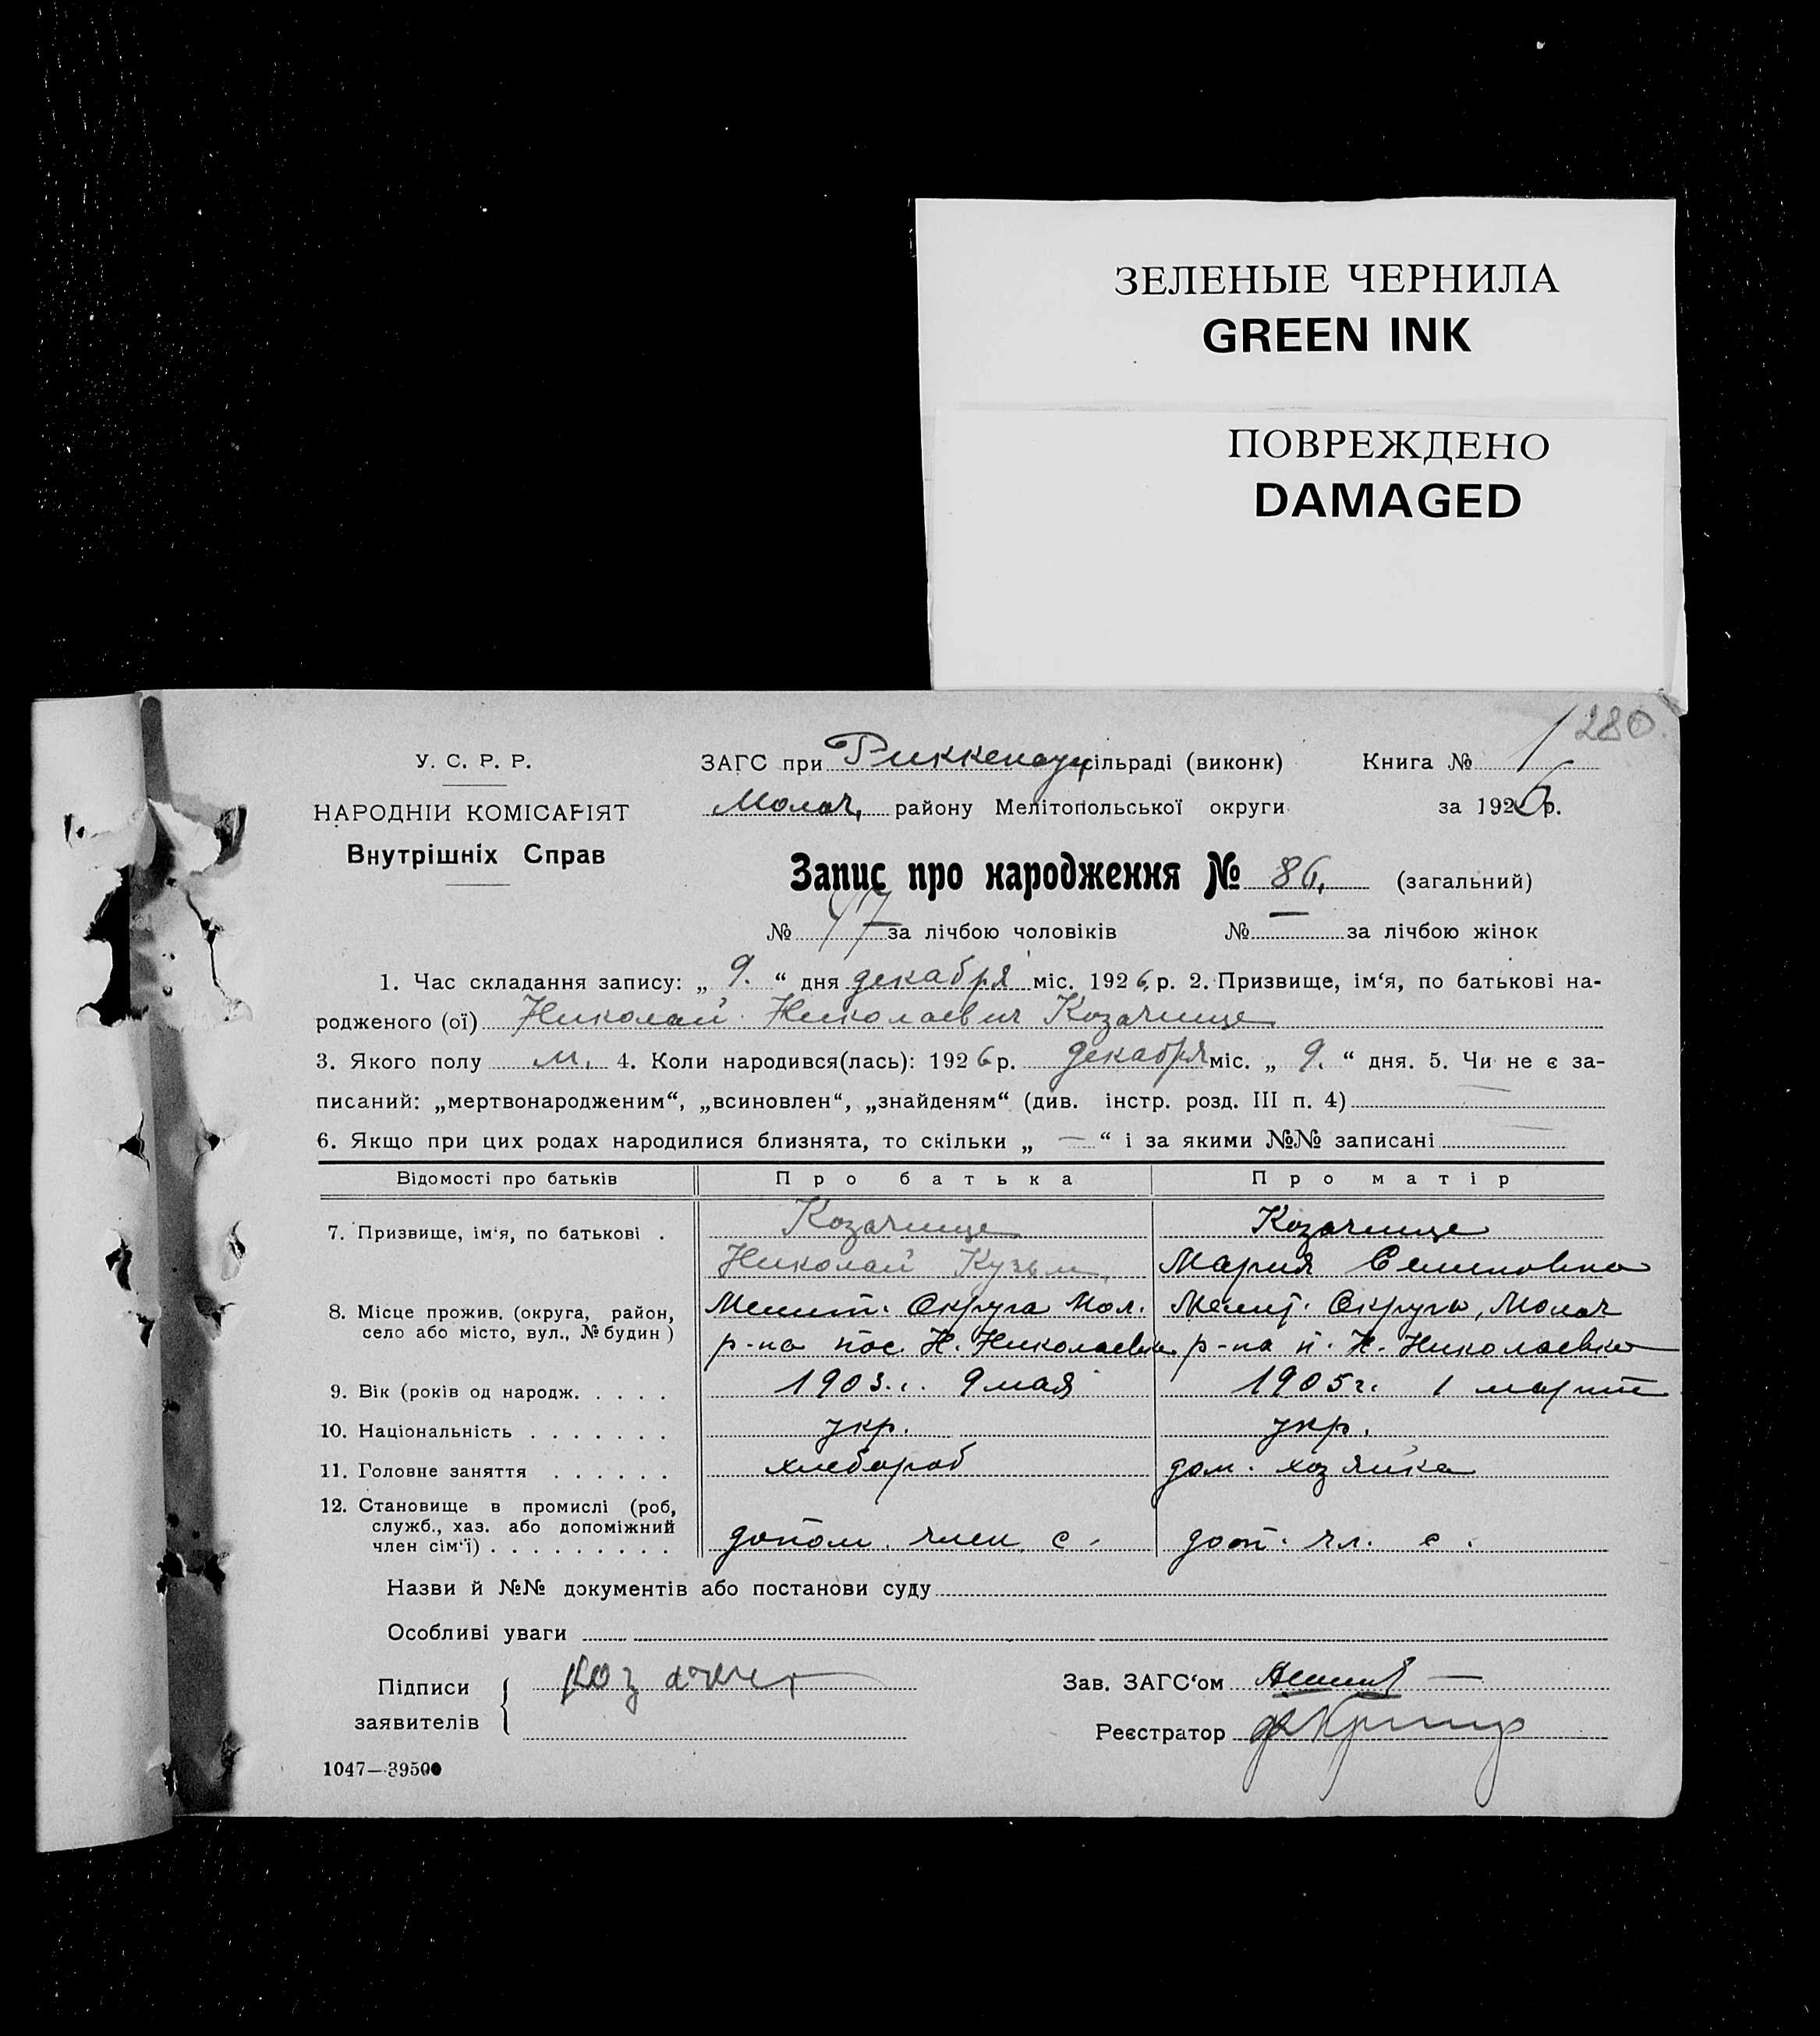 ЗЕЛЕНЫЕ ЧЕРНИЛА
GREEN INK
ПОВРЕЖДЕНО
DAMAGED
280.
У. С. Р. Р.
НАРОДНІЙ КОМІСАРІЯТ
Внутрішніх Справ
ЗАГС при Риккенау сільраді (виконк) Книга № 1
Молоч, району Мелітопольської округи за 1926 р.
Запис про народження № 86, (загальний)
№ 47 за лічбою чоловіків № — за лічбою жінок
1. Час складання запису: „ 9. “ дня декабря міс. 1926 р. 2. Призвище, ім‘я, по батькові на-
родженого (ої) Николай Николаевич Козачище
3. Якого полу м. 4. Коли народився(лась): 1926 р. декабря міс. „ 9. “ дня. 5. Чи не є за-
писаний: „мертвонародженим“, „всиновлен“, „знайденям“ (див. інстр. розд. III п. 4) —
6. Якщо при цих родах народилися близнята, то скільки „ — “ і за якими №№ записані —
Відомості про батьків Про батька Про матір
7. Призвище, ім‘я, по батькові . Козачище Козачище
Николай Кузьм. Мария Семеновна
8. Місце прожив. (округа, район, Мелит. Округа Мол. Мелит. Округа, Молоч
село або місто, вул., № будин ) р-на пос. Н. Николаевка р-на п. Н. Николаевка
9. Вік (років од народж. . . . . 1903 г. 9 мая 1905 г. 1 марта
10. Національність . . . . . . . укр. укр.
11. Головне заняття . . . . . . хлебороб дом. хозяйка
12. Становище в промислі (роб,
служб., хаз. або допоміжний
член сім‘ї) . . . . . . . . . допом. член. с. доп. чл. с.
Назви й №№ документів або постанови суду
Особливі уваги
Підписи
заявителів
Зав. ЗАГС‘ом
Реєстратор
1047—39500